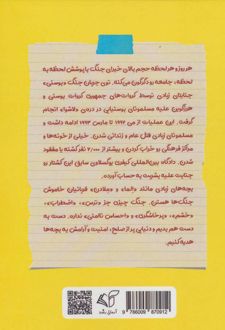 هر روز و هر لحظه حجم بالای خبری جنگ با پوشش لحظه به
لحظه، جامعه رو دگرگون می‌کنه. توی جهان جنگ «بوسنی»
جنایتای زیادی توسط کروات‌های جمهوری کروات بوسنی و
هرزگوین علیه مسلمونای بوسنیایی در دره‌ی «لاشوا» انجام
گرفت. این عملیات از می ۱۹۹۲ تا مارس ۱۹۹۳ ادامه داشت و
مسلمونای زیادی قتل عام و زندانی شدن. خیلی از خونه‌ها و
مراکز فرهنگی رو خراب کردن و بیشتر از ۲,۰۰۰ نفر کشته یا مفقود
شدن. دادگاه بین‌المللی کیفری یوگسلاوی سابق این کشتار رو
جنایت علیه بشریت به حساب آورده.
بچه‌های زیادی مانند «الما» و «ملادن» قربانیان خاموش
جنگ‌ها هستن. جنگ چیزی جز «ترس»، «اضطراب»،
«خشم»، «پرخاشگری» و «احساس ناامنی» نداره. دست به
دست هم بدیم و دنیایی پر از صلح، امنیت و آرامش به بچه‌ها
هدیه کنیم.
9 786009 870912